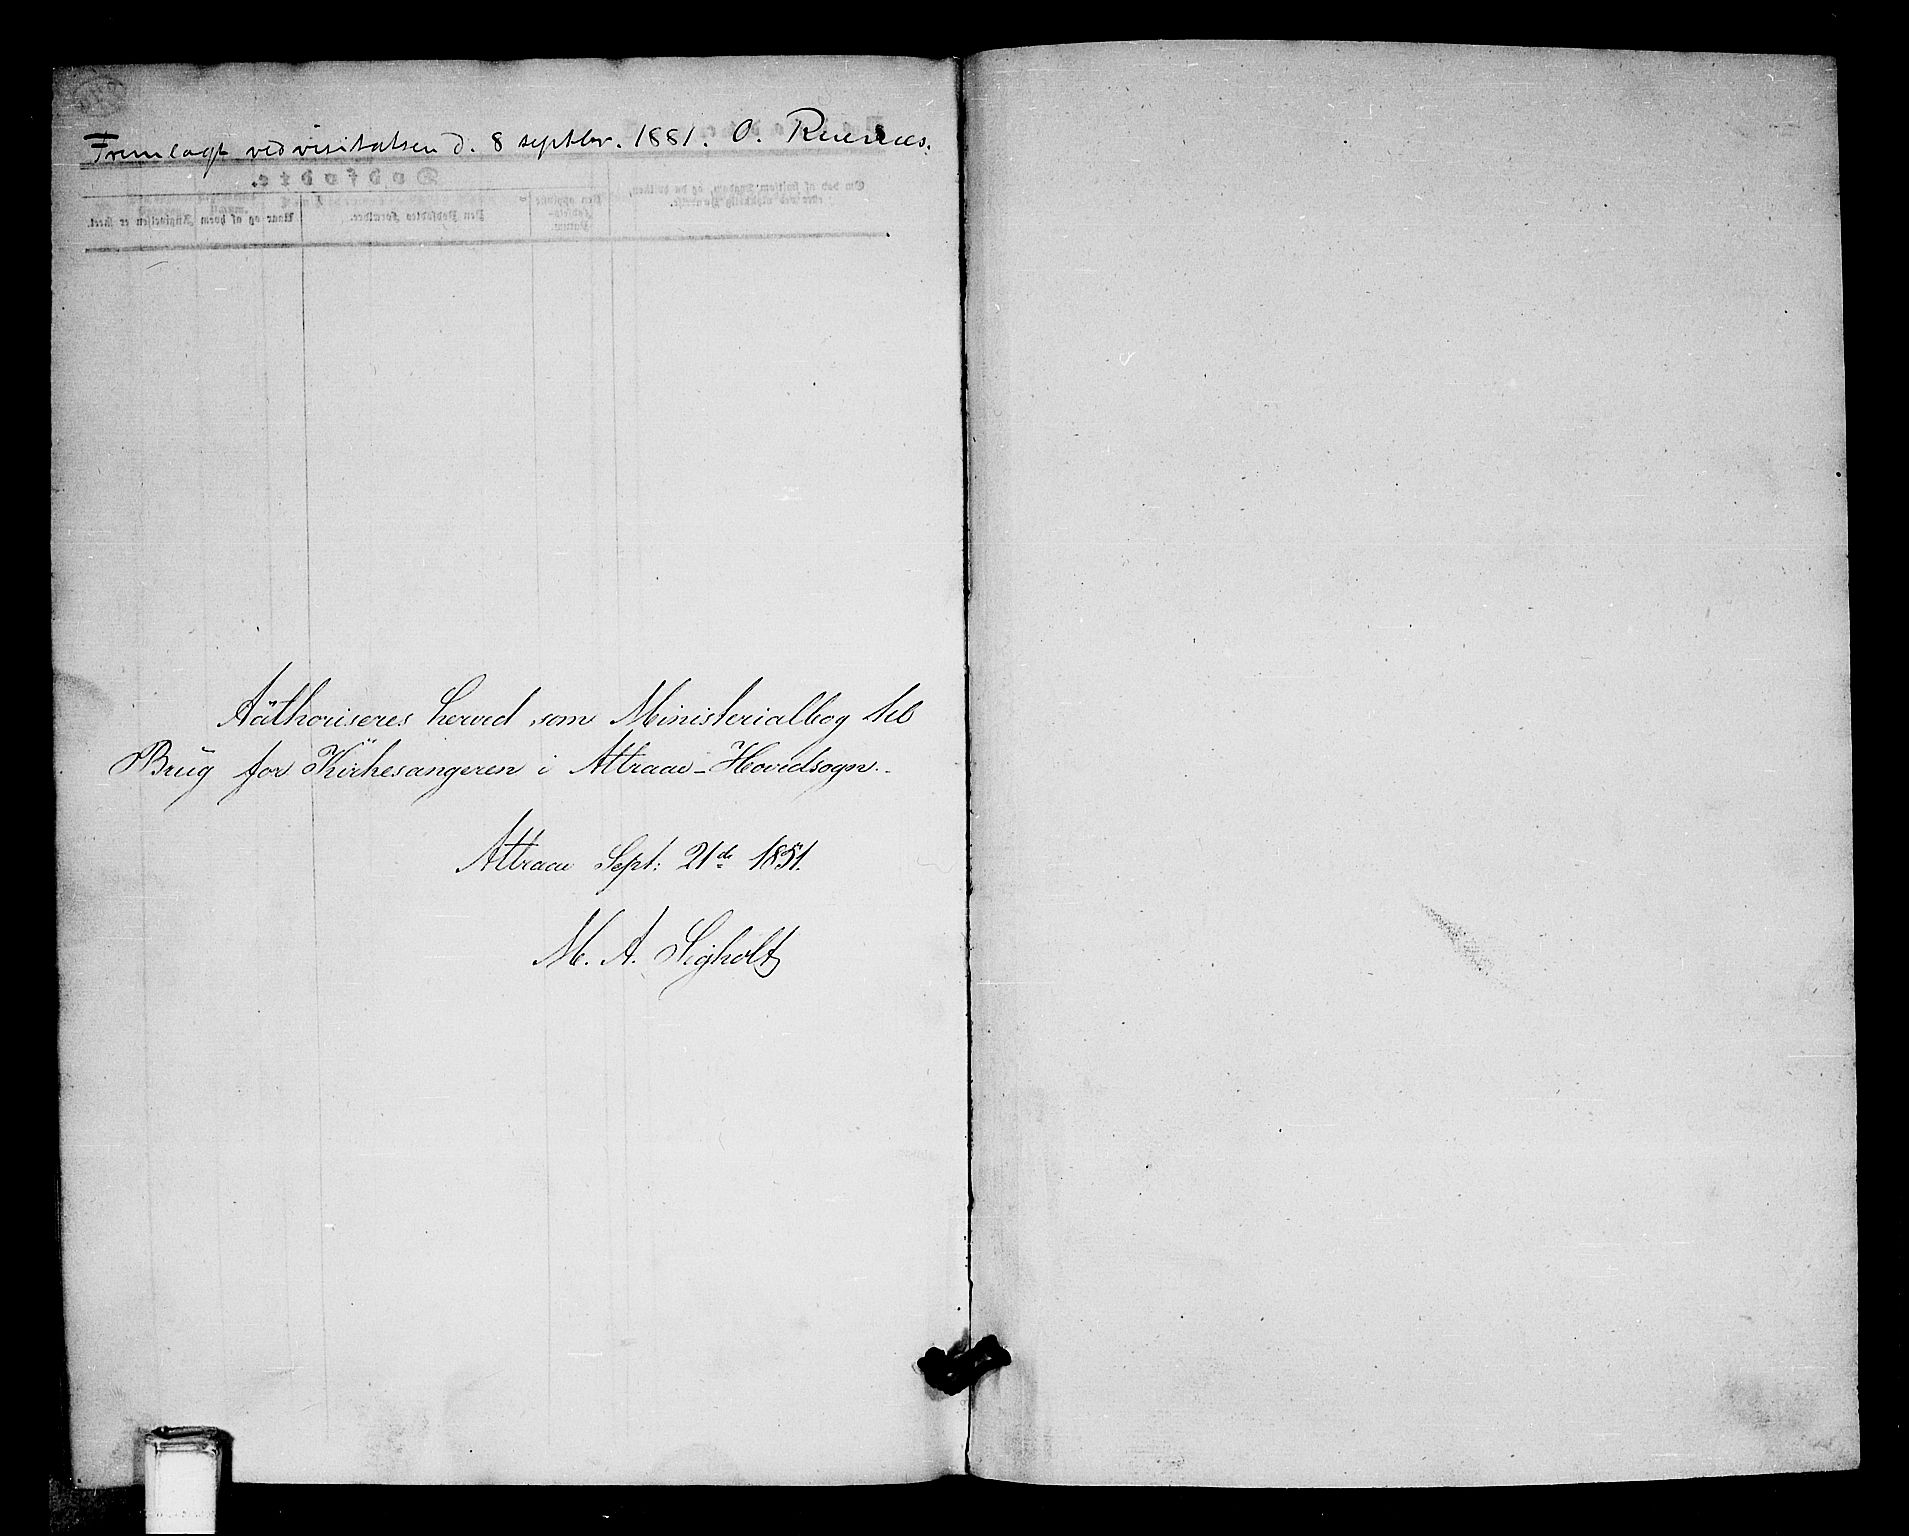 Fremlagt ved visitatsen d. 8 septbr. 1881. O. Ruenæs.
Aüthoriseres herved som Ministerialbog til
Brüg for Kirkesangeren i Attraae-Hovedsogn.
Attraae Sept: 21de 1851.
M. A. Sigholt